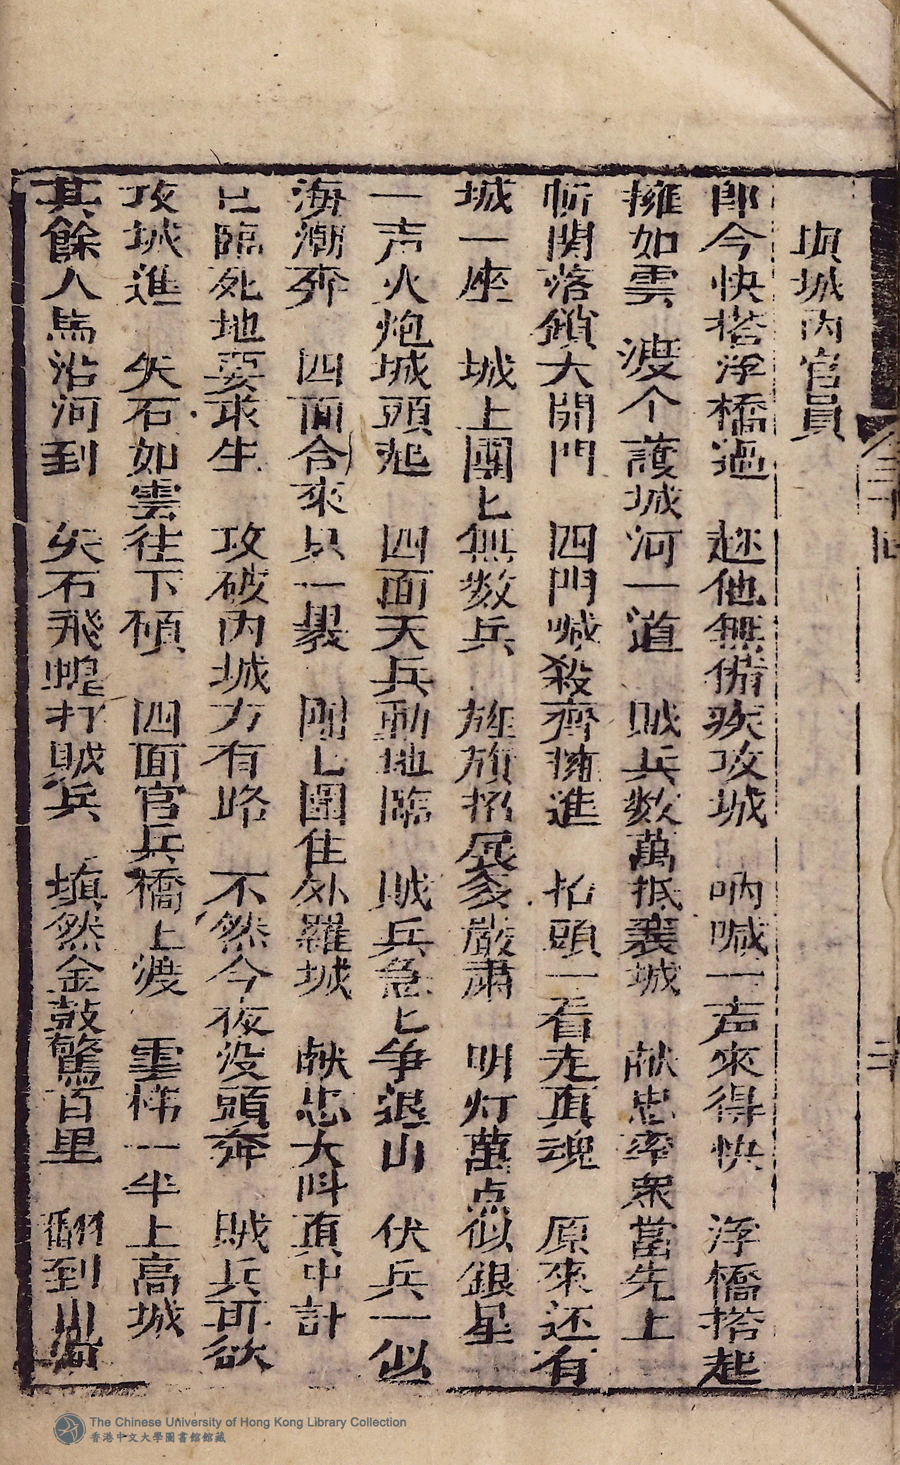 填城內官員
即今快搭浮橋過　趂他無偹疾攻城　吶喊一声來得快　浮橋搭起
擁如雲　渡个護城河一道　賊兵数萬抵襄城　献忠率衆當先上
斬関落鎖大開門　四門喊殺齊擁進　抬頭一看走真魂　原來还有
城一座　城上團匕無数兵　旌旗招展多嚴肅　明灯萬点似銀星
一声火炮城頭起　四面天兵動地臨　賊兵急匕争退出　伏兵一似
海潮奔　四面合來只一裹　團匕圍住外羅城　献忠大呌真中計
已臨死地要求生　攻破內城方有路　不然今夜没頭奔　賊兵可欲
攻城進　矢石如雲往下傾　四面官兵橋上渡　雲梯一半上高城
其餘人馬沿河到　矢石飛蝗打賊兵　填然金鼓驚百里　翻到
卷三十四
二十
The Chinese University of Hong Kong Library Collection
香港中文大學圖書館館藏